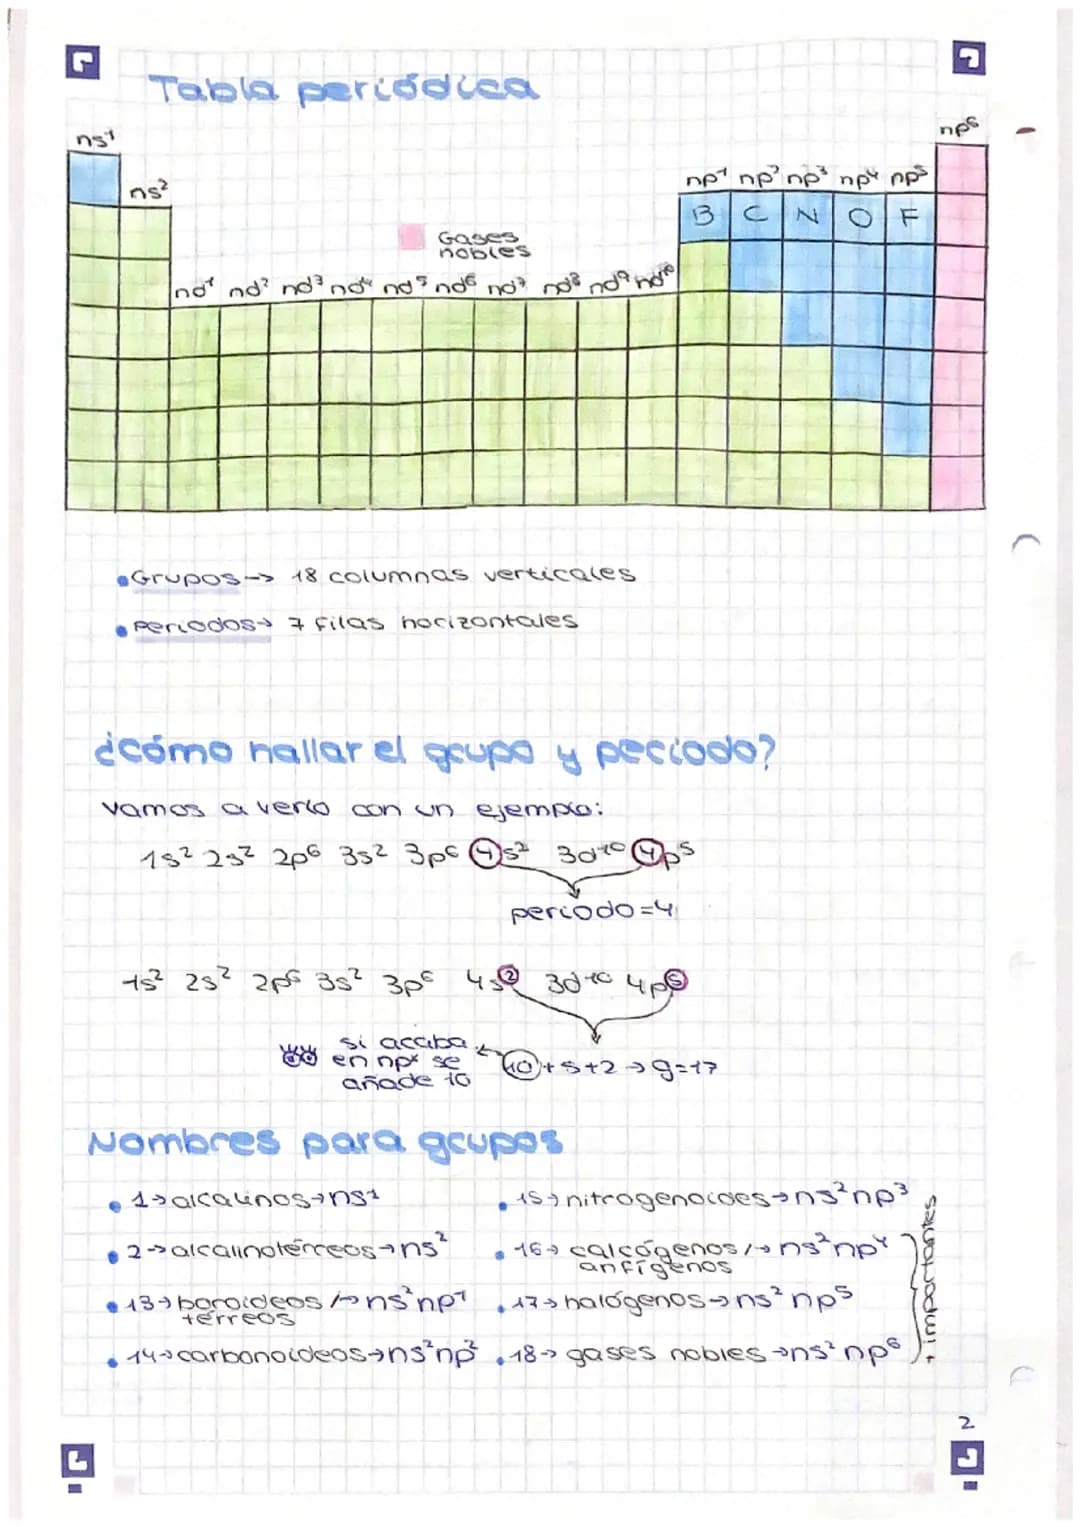 Tabla periódica
ns¹
np⁶
ns²
np¹ np² np³ np⁴ np⁵
B C N O F
Gases
nobles
nd¹ nd² nd³ nd⁴ nd⁵ nd⁶ nd⁷ nd⁸ nd⁹ nd¹⁰
•Grupos→ 18 columnas verticales
•Periodos→ 7 filas horizontales
¿Cómo hallar el grupo y periodo?
Vamos a verlo con un ejemplo:
1s² 2s² 2p⁶ 3s² 3p⁶ 4s² 3d¹⁰ 4p⁵
periodo=4
1s² 2s² 2p⁶ 3s² 3p⁶ 4s² 3d¹⁰ 4p⁵
si acaba
en npˣ se
añade 10
10+5+2→g=17
Nombres para grupos
• 1→alcalinos→ns¹
• 2→alcalinotérreos→ns²
• 13→boroideos/→ns²np¹
térreos
• 14→carbonoideos→ns²np²
• 15→nitrogenoides→ns²np³
• 16→ calcógenos/→ns²np⁴
anfígenos
• 17→halógenos→ns²np⁵
• 18→ gases nobles→ns²np⁶
+ importantes
2